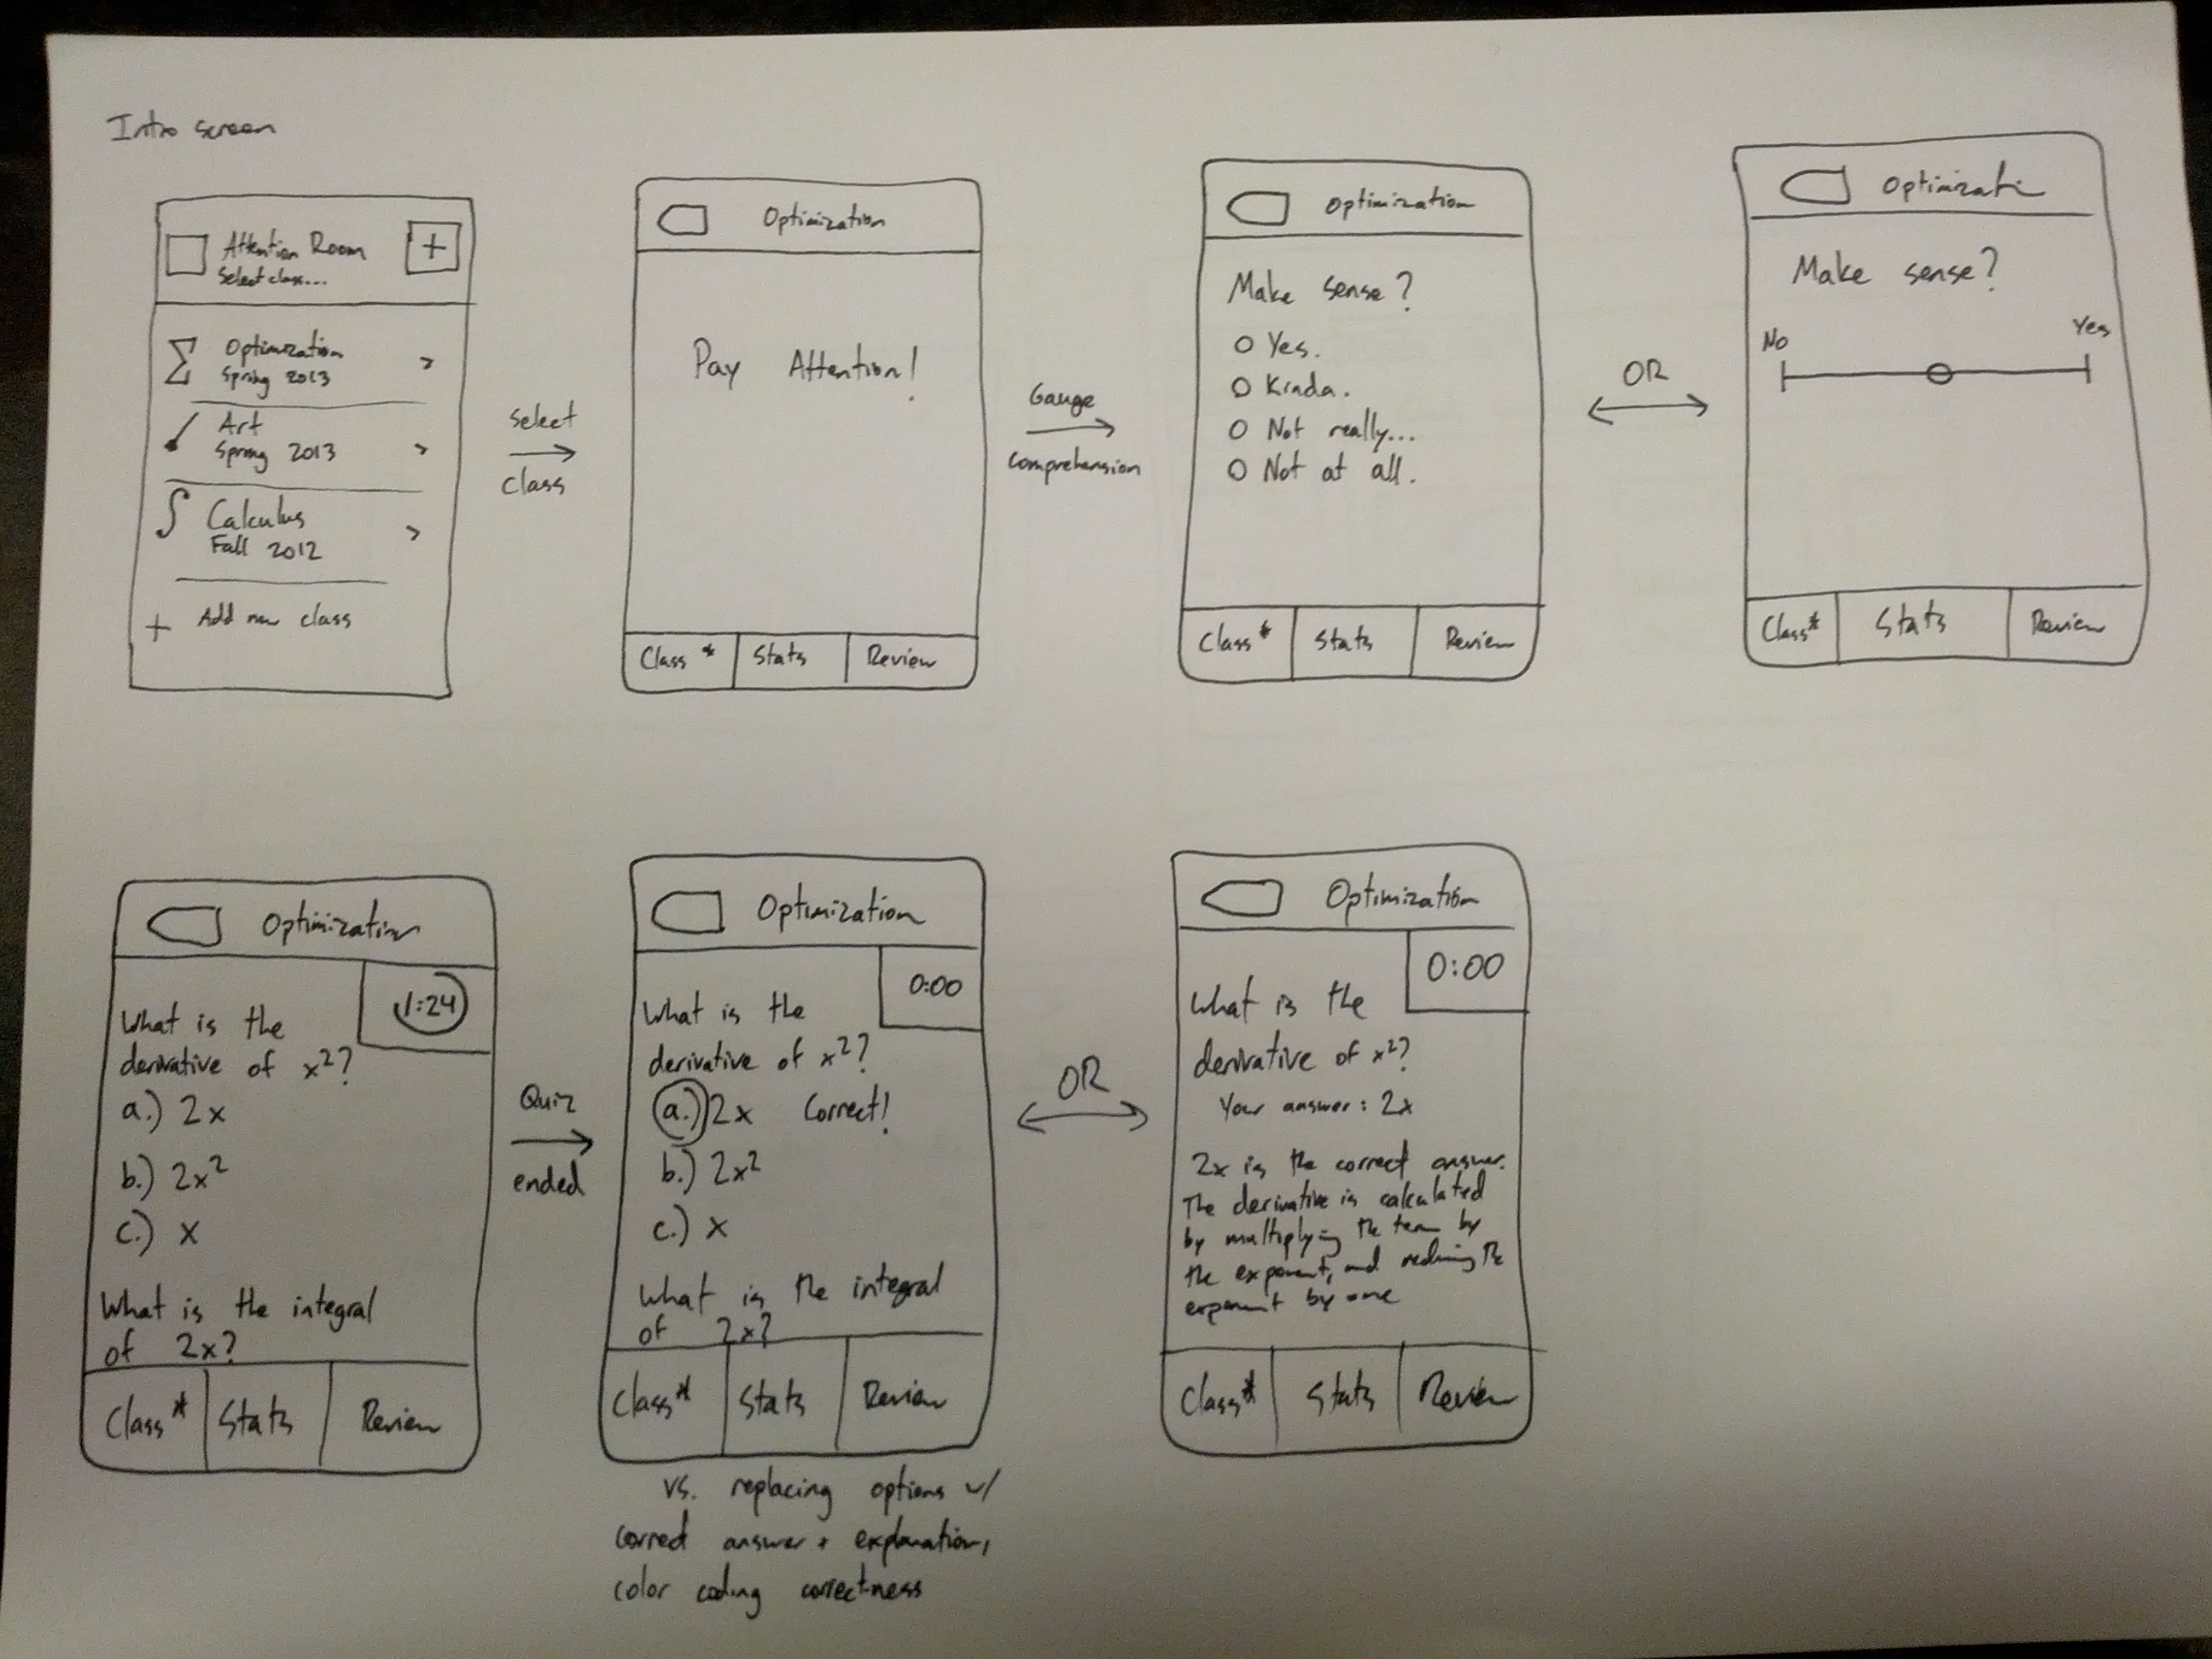 Intro screen
Attention Room
Select class...
+
Σ Optimization
Spring 2013 >
Art
Spring 2013 >
∫ Calculus
Fall 2012 >
+ Add new class
Select
class
Optimization
Pay Attention!
Class * Stats Review
Gauge
comprehension
Optimization
Make sense?
Yes.
Kinda.
Not really...
Not at all.
Class* Stats Review
OR
Optimizati
Make sense?
No Yes
Class* Stats Review
Optimization
1:24
What is the
derivative of x²?
a.) 2x
b.) 2x²
c.) x
What is the integral
of 2x?
Class* Stats Review
Quiz
ended
Optimization
0:00
What is the
derivative of x²?
a.) 2x Correct!
b.) 2x²
c.) x
What is the integral
of 2x?
Class* Stats Review
vs. replacing options w/
correct answer + explanation,
color coding correctness
OR
Optimization
0:00
What is the
derivative of x²?
Your answer: 2x
2x is the correct answer.
The derivative is calculated
by multiplying the term by
the exponent, and reducing the
exponent by one
Class* Stats Review